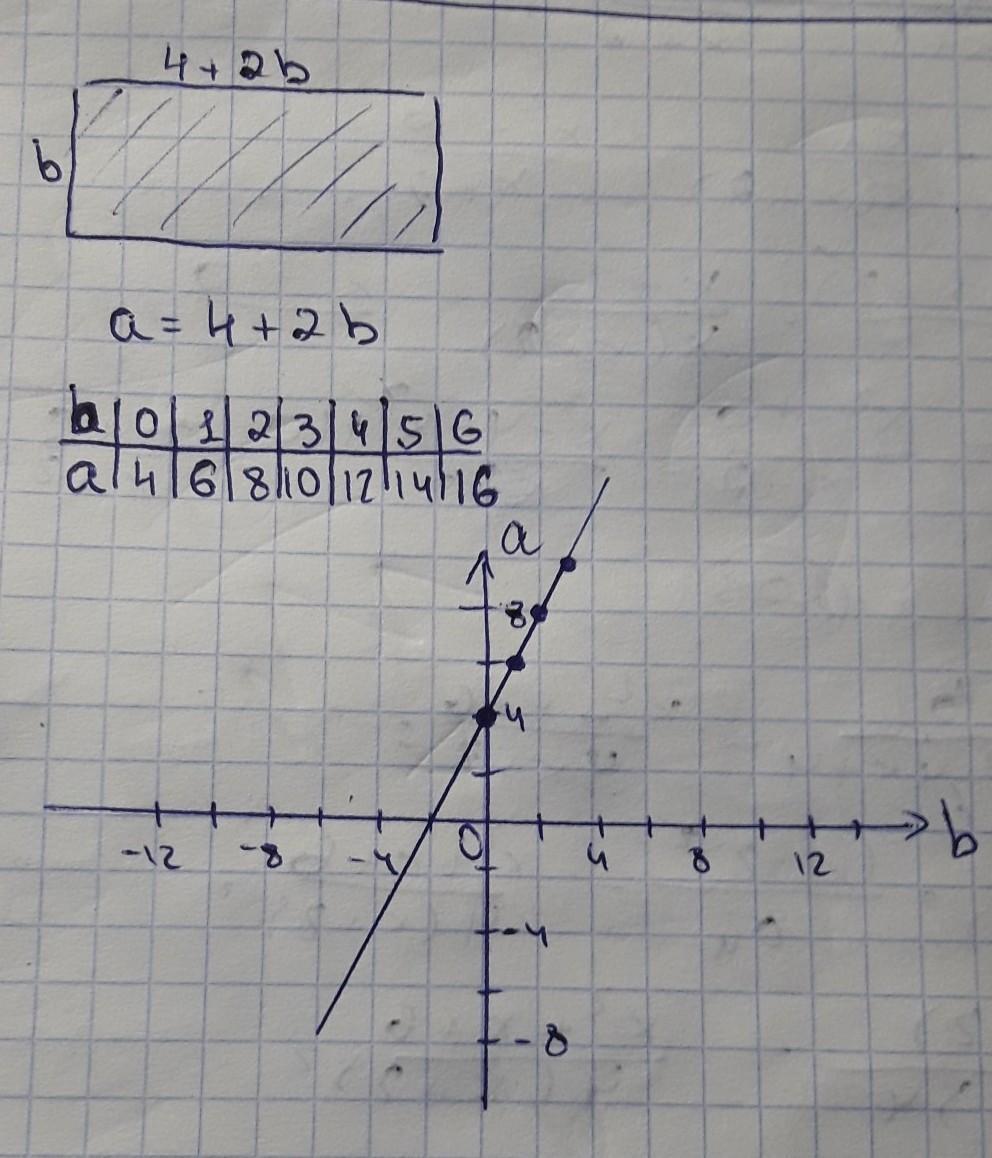 4+2b
b
a = 4 + 2b
b | 0 | 1 | 2 | 3 | 4 | 5 | 6
a | 4 | 6 | 8 | 10 | 12 | 14 | 16
a
8
4
-12 -8 -4 0 4 8 12 b
-4
-8